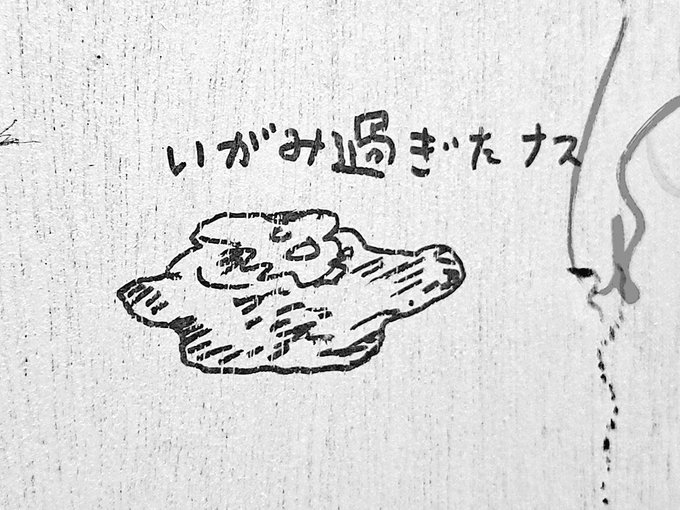 いがみ過ぎたナス